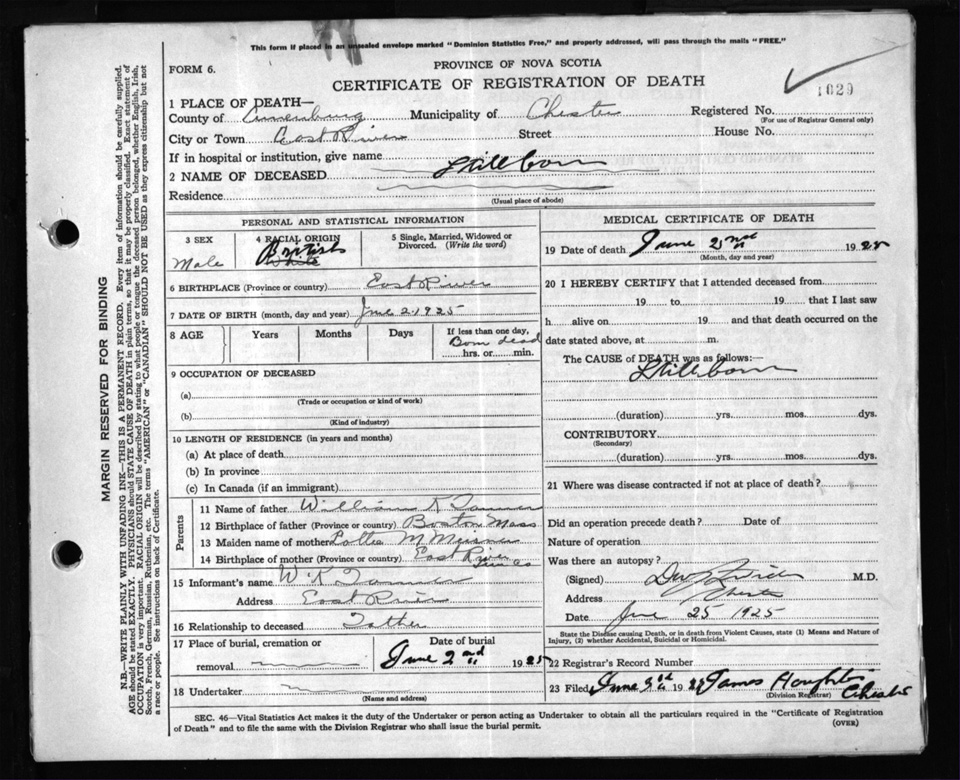 This form if placed in an unsealed envelope marked "Dominion Statistics Free," and properly addressed, will pass through the mails "FREE."
FORM 6.
PROVINCE OF NOVA SCOTIA
CERTIFICATE OF REGISTRATION OF DEATH
1629
1 PLACE OF DEATH—
County of Lunenburg Municipality of Chester Registered No.
(For use of Registrar General only)
City or Town East River Street House No.
If in hospital or institution, give name
2 NAME OF DECEASED Stillborn
Residence
(Usual place of abode)
PERSONAL AND STATISTICAL INFORMATION
3 SEX 4 RACIAL ORIGIN 5 Single, Married, Widowed or Divorced. (Write the word)
Male British White
6 BIRTHPLACE (Province or country) East River
7 DATE OF BIRTH (month, day and year) June 2 1925
8 AGE Years Months Days If less than one day,
Born dead
hrs. or min.
9 OCCUPATION OF DECEASED
(a)
(Trade or occupation or kind of work)
(b)
(Kind of industry)
10 LENGTH OF RESIDENCE (in years and months)
(a) At place of death
(b) In province
(c) In Canada (if an immigrant)
Parents
11 Name of father William K
12 Birthplace of father (Province or country) Boston Mass
13 Maiden name of mother M
14 Birthplace of mother (Province or country) East River
15 Informant's name W K
Address East River
16 Relationship to deceased Father
17 Place of burial, cremation or removal Date of burial
June 2nd 1925
18 Undertaker
(Name and address)
MEDICAL CERTIFICATE OF DEATH
19 Date of death June 2nd 1925
(Month, day and year)
20 I HEREBY CERTIFY that I attended deceased from
19 to 19 that I last saw
h alive on 19 and that death occurred on the
date stated above, at m.
The CAUSE of DEATH was as follows:—
Stillborn
(duration) yrs. mos. dys.
CONTRIBUTORY
(Secondary)
(duration) yrs. mos. dys.
21 Where was disease contracted if not at place of death?
Did an operation precede death? Date of
Nature of operation
Was there an autopsy?
(Signed) M.D.
Address Chester
Date June 25 1925
State the Disease causing Death, or in death from Violent Causes, state (1) Means and Nature of Injury, (2) whether Accidental, Suicidal or Homicidal.
22 Registrar's Record Number
23 Filed June 1925 James Houghton
(Division Registrar) Chester
SEC. 46—Vital Statistics Act makes it the duty of the Undertaker or person acting as Undertaker to obtain all the particulars required in the "Certificate of Registration
of Death" and to file the same with the Division Registrar who shall issue the burial permit.
(OVER)
MARGIN RESERVED FOR BINDING
N.B.—WRITE PLAINLY WITH UNFADING INK—THIS IS A PERMANENT RECORD. Every item of information should be carefully supplied.
AGE should be stated EXACTLY. PHYSICIANS should STATE CAUSE OF DEATH in plain terms, so that it may be properly classified. Exact statement of
OCCUPATION is very important. RACIAL ORIGIN will be described by stating to what people or tongue the deceased person belonged, whether English, Irish,
Scotch, French, German, Russian, Ruthenian, etc. The terms "AMERICAN" or "CANADIAN" SHOULD NOT BE USED as they express citizenship but not
a race or people. See instructions on back of Certificate.